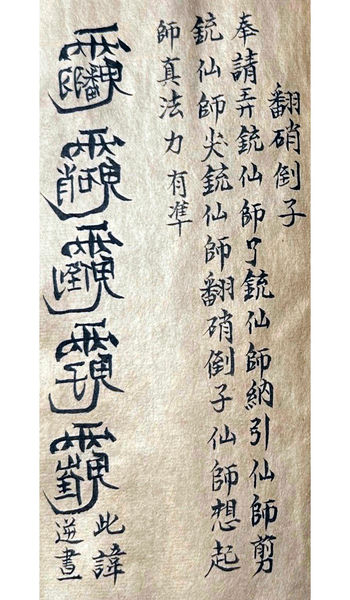 翻硝倒子
奉請弄銃仙師銃仙師納引仙師剪
銃仙師尖銃仙師翻硝倒子仙師想起
師真法力有準
此諱
逆畫